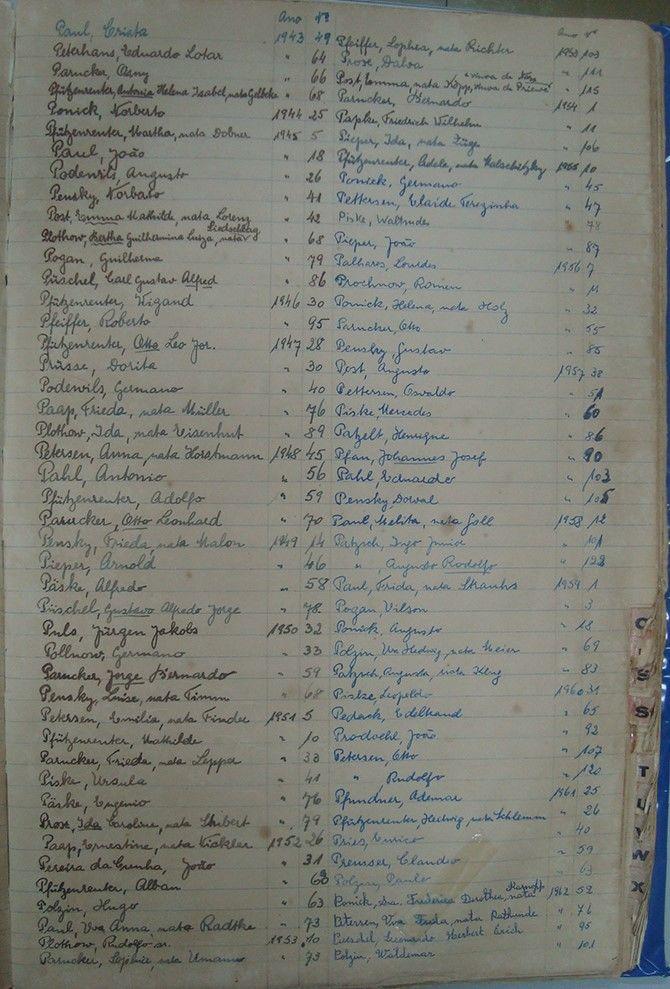 Ano Nº
Paul, Crista 1943 49
Peterhans, Eduardo Lotar " 64
Parucker, Osny " 66
Pfützenreuter, Antonia Helena Isabel, nata Gelbcke " 68
Ponick, Norberto 1944 25
Pfützenreuter, Martha, nata Dobner 1945 5
Paul, João " 18
Podewils, Augusto " 26
Pensky, Norbato " 41
Post, Emma Mathilde, nata Lorenz " 42
Plothow, Bertha Guilhermina Luiza, nata " 68
Pogan, Guilherme " 79
Püschel, Carl Gustav Alfred " 86
Pfützenreuter, Wigand 1946 30
Pfeiffer, Roberto " 95
Pfützenreuter, Otto Leo Jor. 1947 28
Prüsse, Dorita " 30
Podewils, Germano " 40
Paap, Frieda, nata Müller " 76
Plothow, Ida, nata Eisenhut " 89
Petersen, Anna, nata Horstmann 1948 45
Pahl, Antonio " 56
Pfützenreuter, Adolfo " 59
Parucker, Otto Leonhard " 70
Pensky, Frieda, nata Malon 1949 14
Pieper, Arnold " 46
Päske, Alfredo " 58
Püschel, Gustavo Alfredo Jorge " 78
Puls, Jürgen Jakobs 1950 32
Pollnow, Germano " 33
Parucker, Jorge Bernardo " 59
Pensky, Luise, nata Timm " 68
Petersen, Emilia, nata Finder 1951 5
Pfützenreuter, Mathilde " 10
Parucker, Frieda, nata Lepper " 33
Piske, Ursula " 41
Päske, Eugenio " 76
Prose, Ida Caroline, nata Stubert " 79
Paap, Ernestine, nata 1952 26
Pereira da Cunha, João " 31
Pfützenreuter, Alban " 60
Polzin, Hugo " 63
Paul, Vva Anna, nata Radtke " 73
Plothow, Rudolfo sn. 1953 10
Parucker, nata Umann " 73
Ano Nº
Pfeiffer, Sophia, nata Richter 1953 103
Prose, Dalva " 111
Post, Emma, nata Kopp, viuva de " 115
Parucker, Bernardo 1954 1
Papke, Friedrich Wilhelm " 11
Pieper, Ida, nata " 106
Pfützenreuter, Adele, nata 1955 10
Ponick, Germano " 45
Pettersen, Elaide Terezinha " 47
Piske, Waltrudes " 78
Pieper, João " 87
Palhares, Lourdes 1956 7
Prochnow, Romeu " 11
Ponick, Helena, nata Holz " 32
Parucker, Otto " 55
Pensky, Gustav " 85
Post, Augusto 1957 38
Pettersen, Osvaldo " 51
Piske Mercedes " 60
Patzelt, Henrique " 86
Pfau, Johannes Josef " 90
Pahl Eduardo " 103
Pensky Dorval " 105
Paul, Melita, nata Goll 1958 12
Patzsch, Ingo Junior " 101
" , Augusto Rodolfo " 122
Paul, Frida, nata Strauhs 1959 1
Pogan, Vilson " 3
Ponick, Augusto " 18
Polzin, Vva Hedwig, nata Meier " 69
Patzsch, Augusta, nata " 83
Leopoldo 1960 31
Edeltraud " 65
Prodoehl, João " 92
Petersen, Otto " 107
" , Rudolfo " 120
Pfundner, Ademar 1961 25
Pfützenreuter, Hedwig, nata Schlemm " 26
Pries, Eurico " 40
Preusser, Claudio " 59
Polzin, Paulo " 63
Ponick, Frederica Dorothea, nata Karnopp 1962 52
Petersen, Vva Frida, nata " 76
Herbert Erich " 95
Polzin, Waldemar " 101